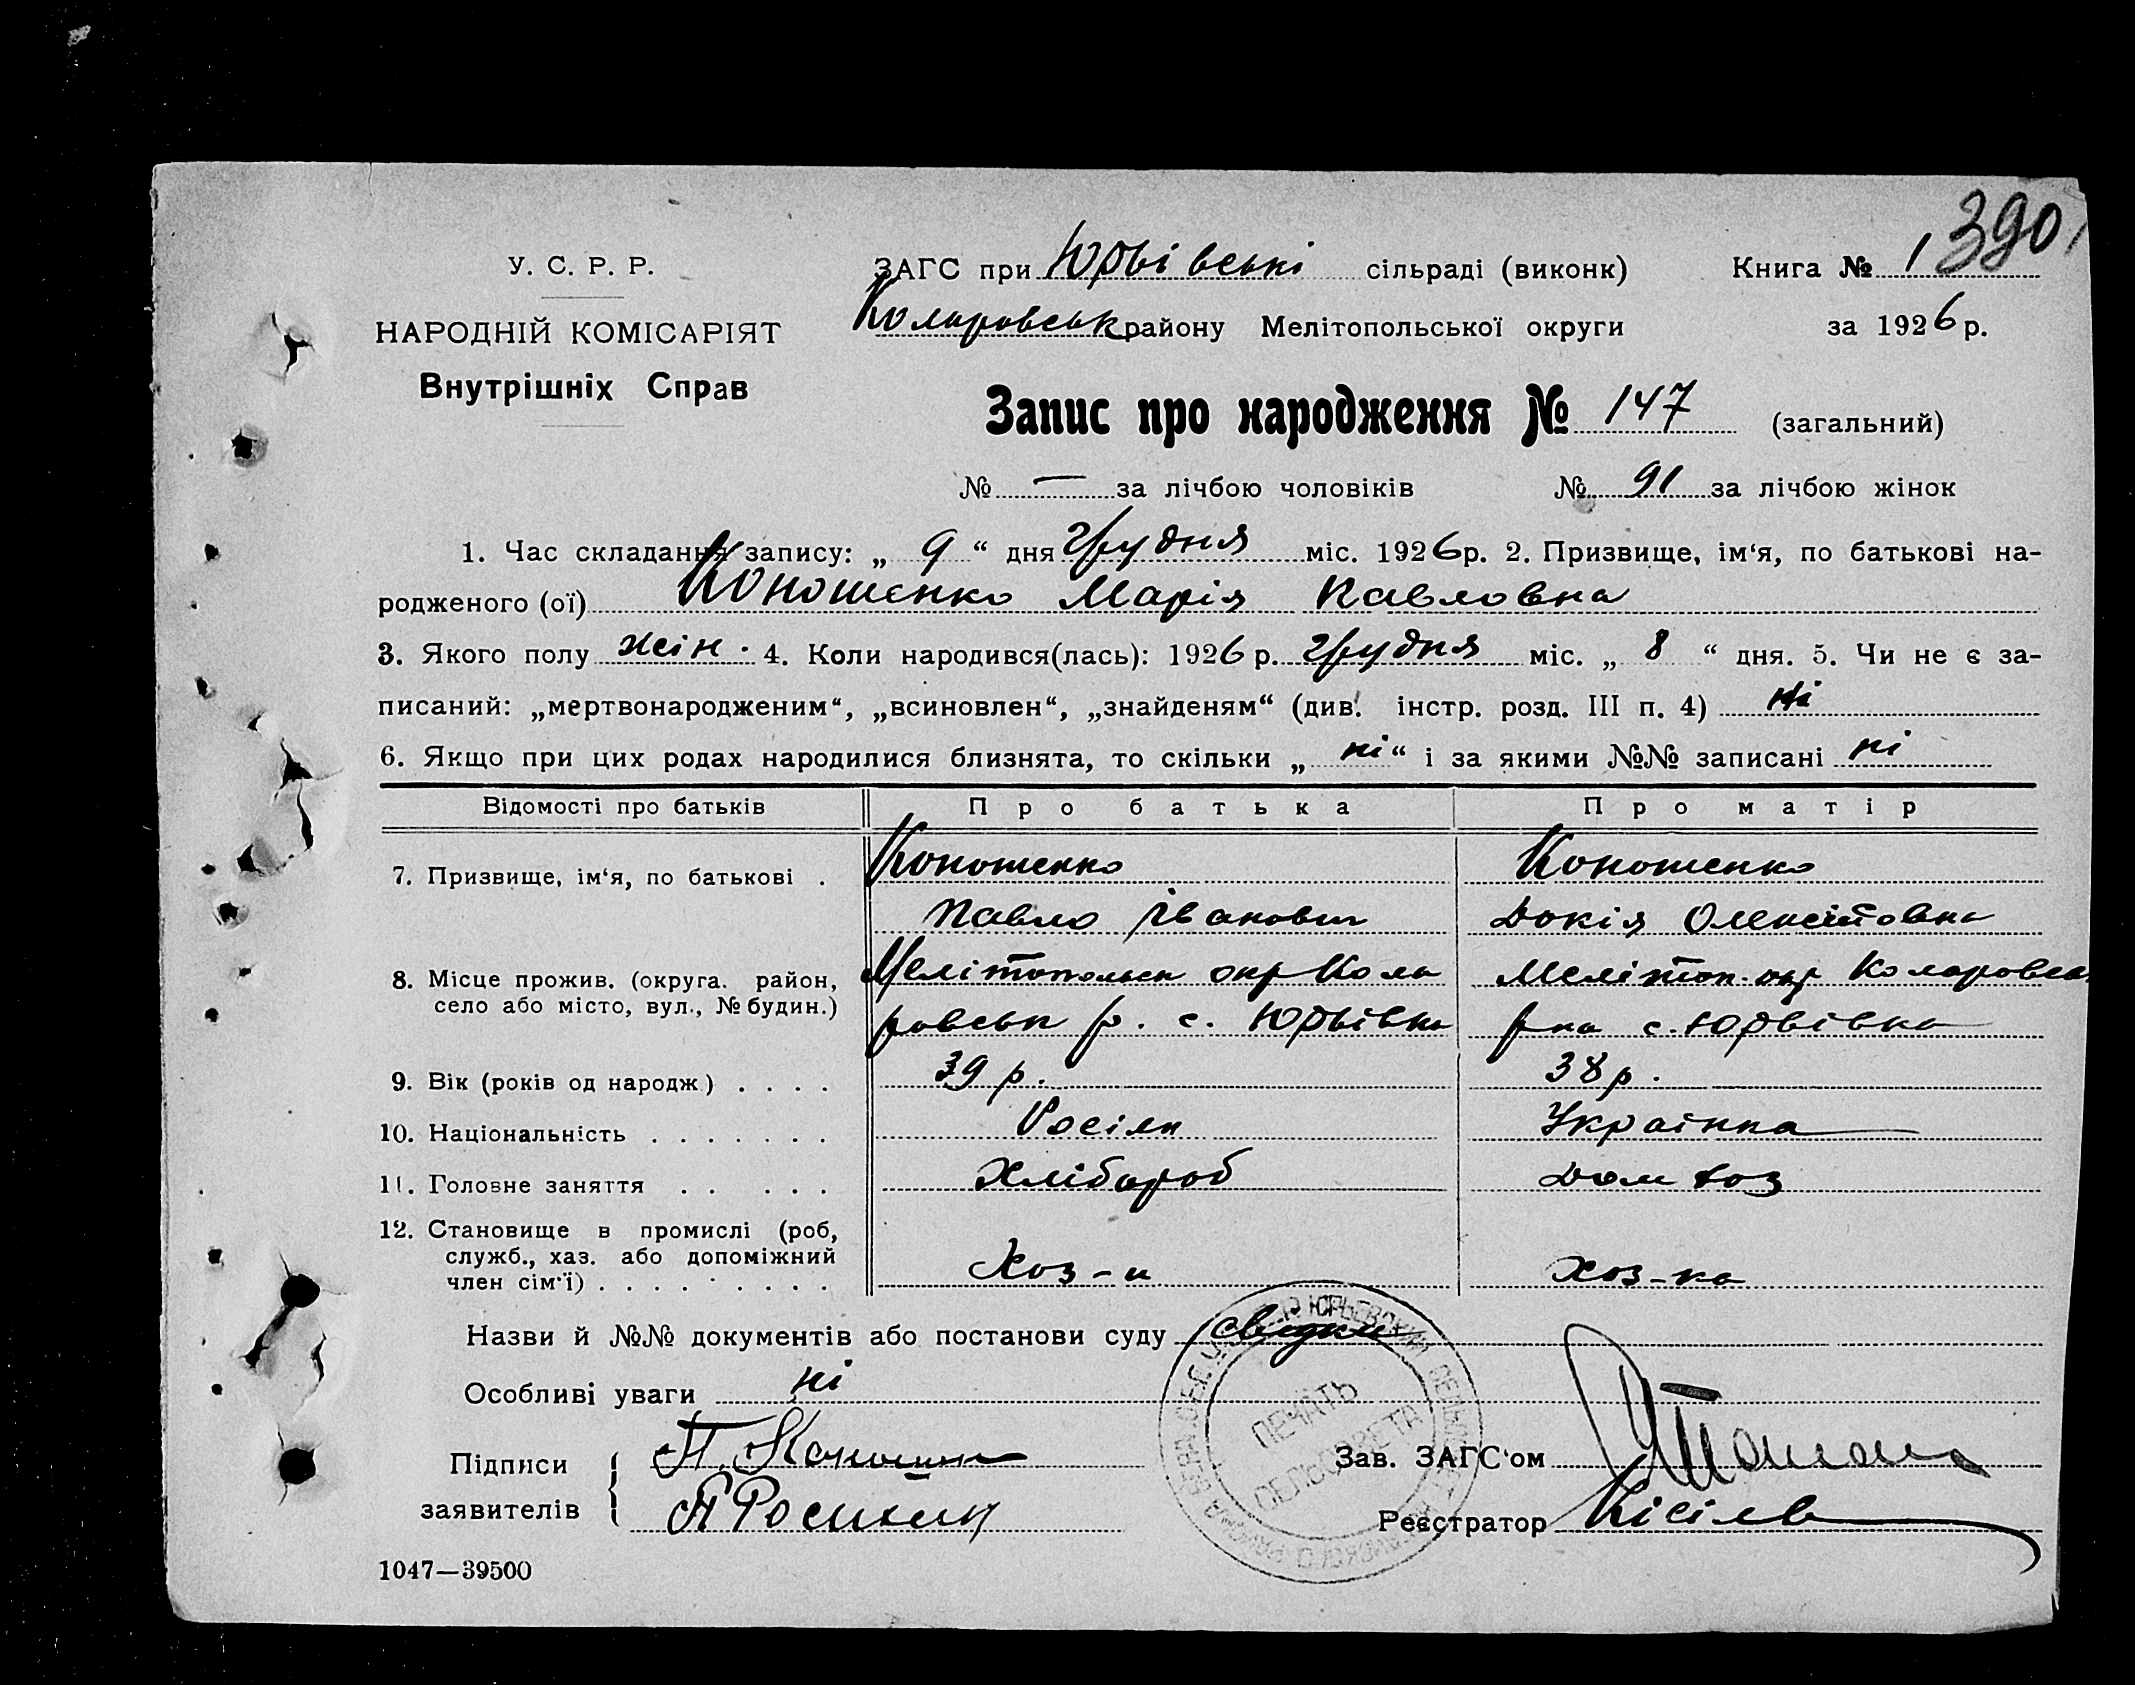 390
У. С. Р. Р.
НАРОДНІЙ КОМІСАРІЯТ
Внутрішніх Справ
ЗАГС при Юрьівські сільраді (виконк) Книга № 1
Коларовськ району Мелітопольської округи за 1926 р.
Запис про народження № 147 (загальний)
№ — за лічбою чоловіків № 91 за лічбою жінок
1. Час складання запису: „ 9 “ дня грудня міс. 1926 р. 2. Призвище, ім‘я, по батькові на-
родженого (ої) Коношенко Марія Павловна
3. Якого полу жін. 4. Коли народився(лась): 1926 р. грудня міс. „ 8 “ дня. 5. Чи не є за-
писаний: „мертвонародженим“, „всиновлен“, „знайденям“ (див. інстр. розд. III п. 4) ні
6. Якщо при цих родах народилися близнята, то скільки „ ні “ і за якими №№ записані ні
Відомості про батьків Про батька Про матір
7. Призвище, ім‘я, по батькові . Коношенко Коношенко
Павло Іванович Докія Олексіївна
8. Місце прожив. (округа. район, Мелітопольск окр Кола Меліток. окр Коларовськ
село або місто, вул., № будин.) ровськ р. с. Юрьівка рна с. Юрьівка
9. Вік (років од народж) . . . . 39 р. 38 р.
10. Національність . . . . . . . Росіян Українка
11. Головне заняття . . . . . Хлібороб Дом хоз
12. Становище в промислі (роб,
служб., хаз. або допоміжний Хоз-н Хоз-ка
член сім‘ї) . . . . . . . .
Назви й №№ документів або постанови суду
Особливі уваги ні
Підписи П. Коношенк Зав. ЗАГС‘ом
заявителів Реєстратор Кісілів
ЮРЬЕВСКИЙ
ПЕЧАТЬ
СЕЛЬСОВЕТА
1047—39500